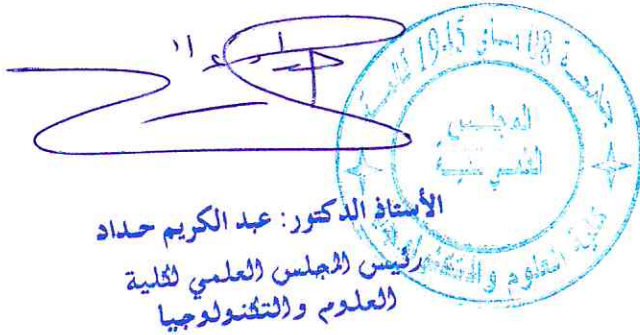 جامعة 08 ماي 1945 قالمة
المجلس
العلمي للكلية
كلية العلوم والتكنولوجيا
الأستاذ الدكتور: عبد الكريم حداد
رئيس المجلس العلمي لكلية
العلوم والتكنولوجيا